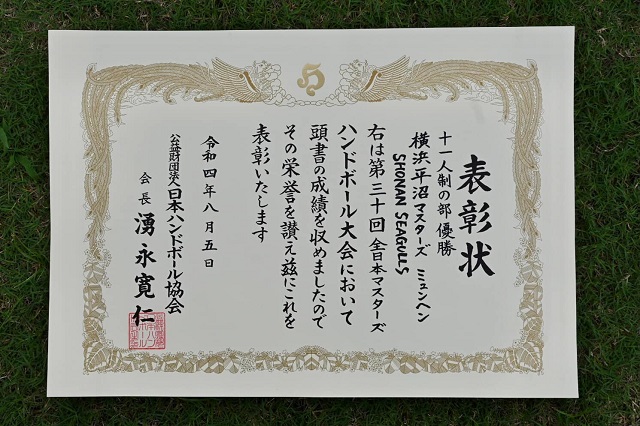 表彰状
十一人制の部 優勝
横浜平沼マスターズ ミュンヘン
SHONAN SEAGULLS
右は第三十回 全日本マスターズ
ハンドボール大会において
頭書の成績を収めましたので
その栄誉を讃え茲にこれを
表彰いたします
令和四年八月五日
公益財団法人日本ハンドボール協会
会長 湧永寛仁